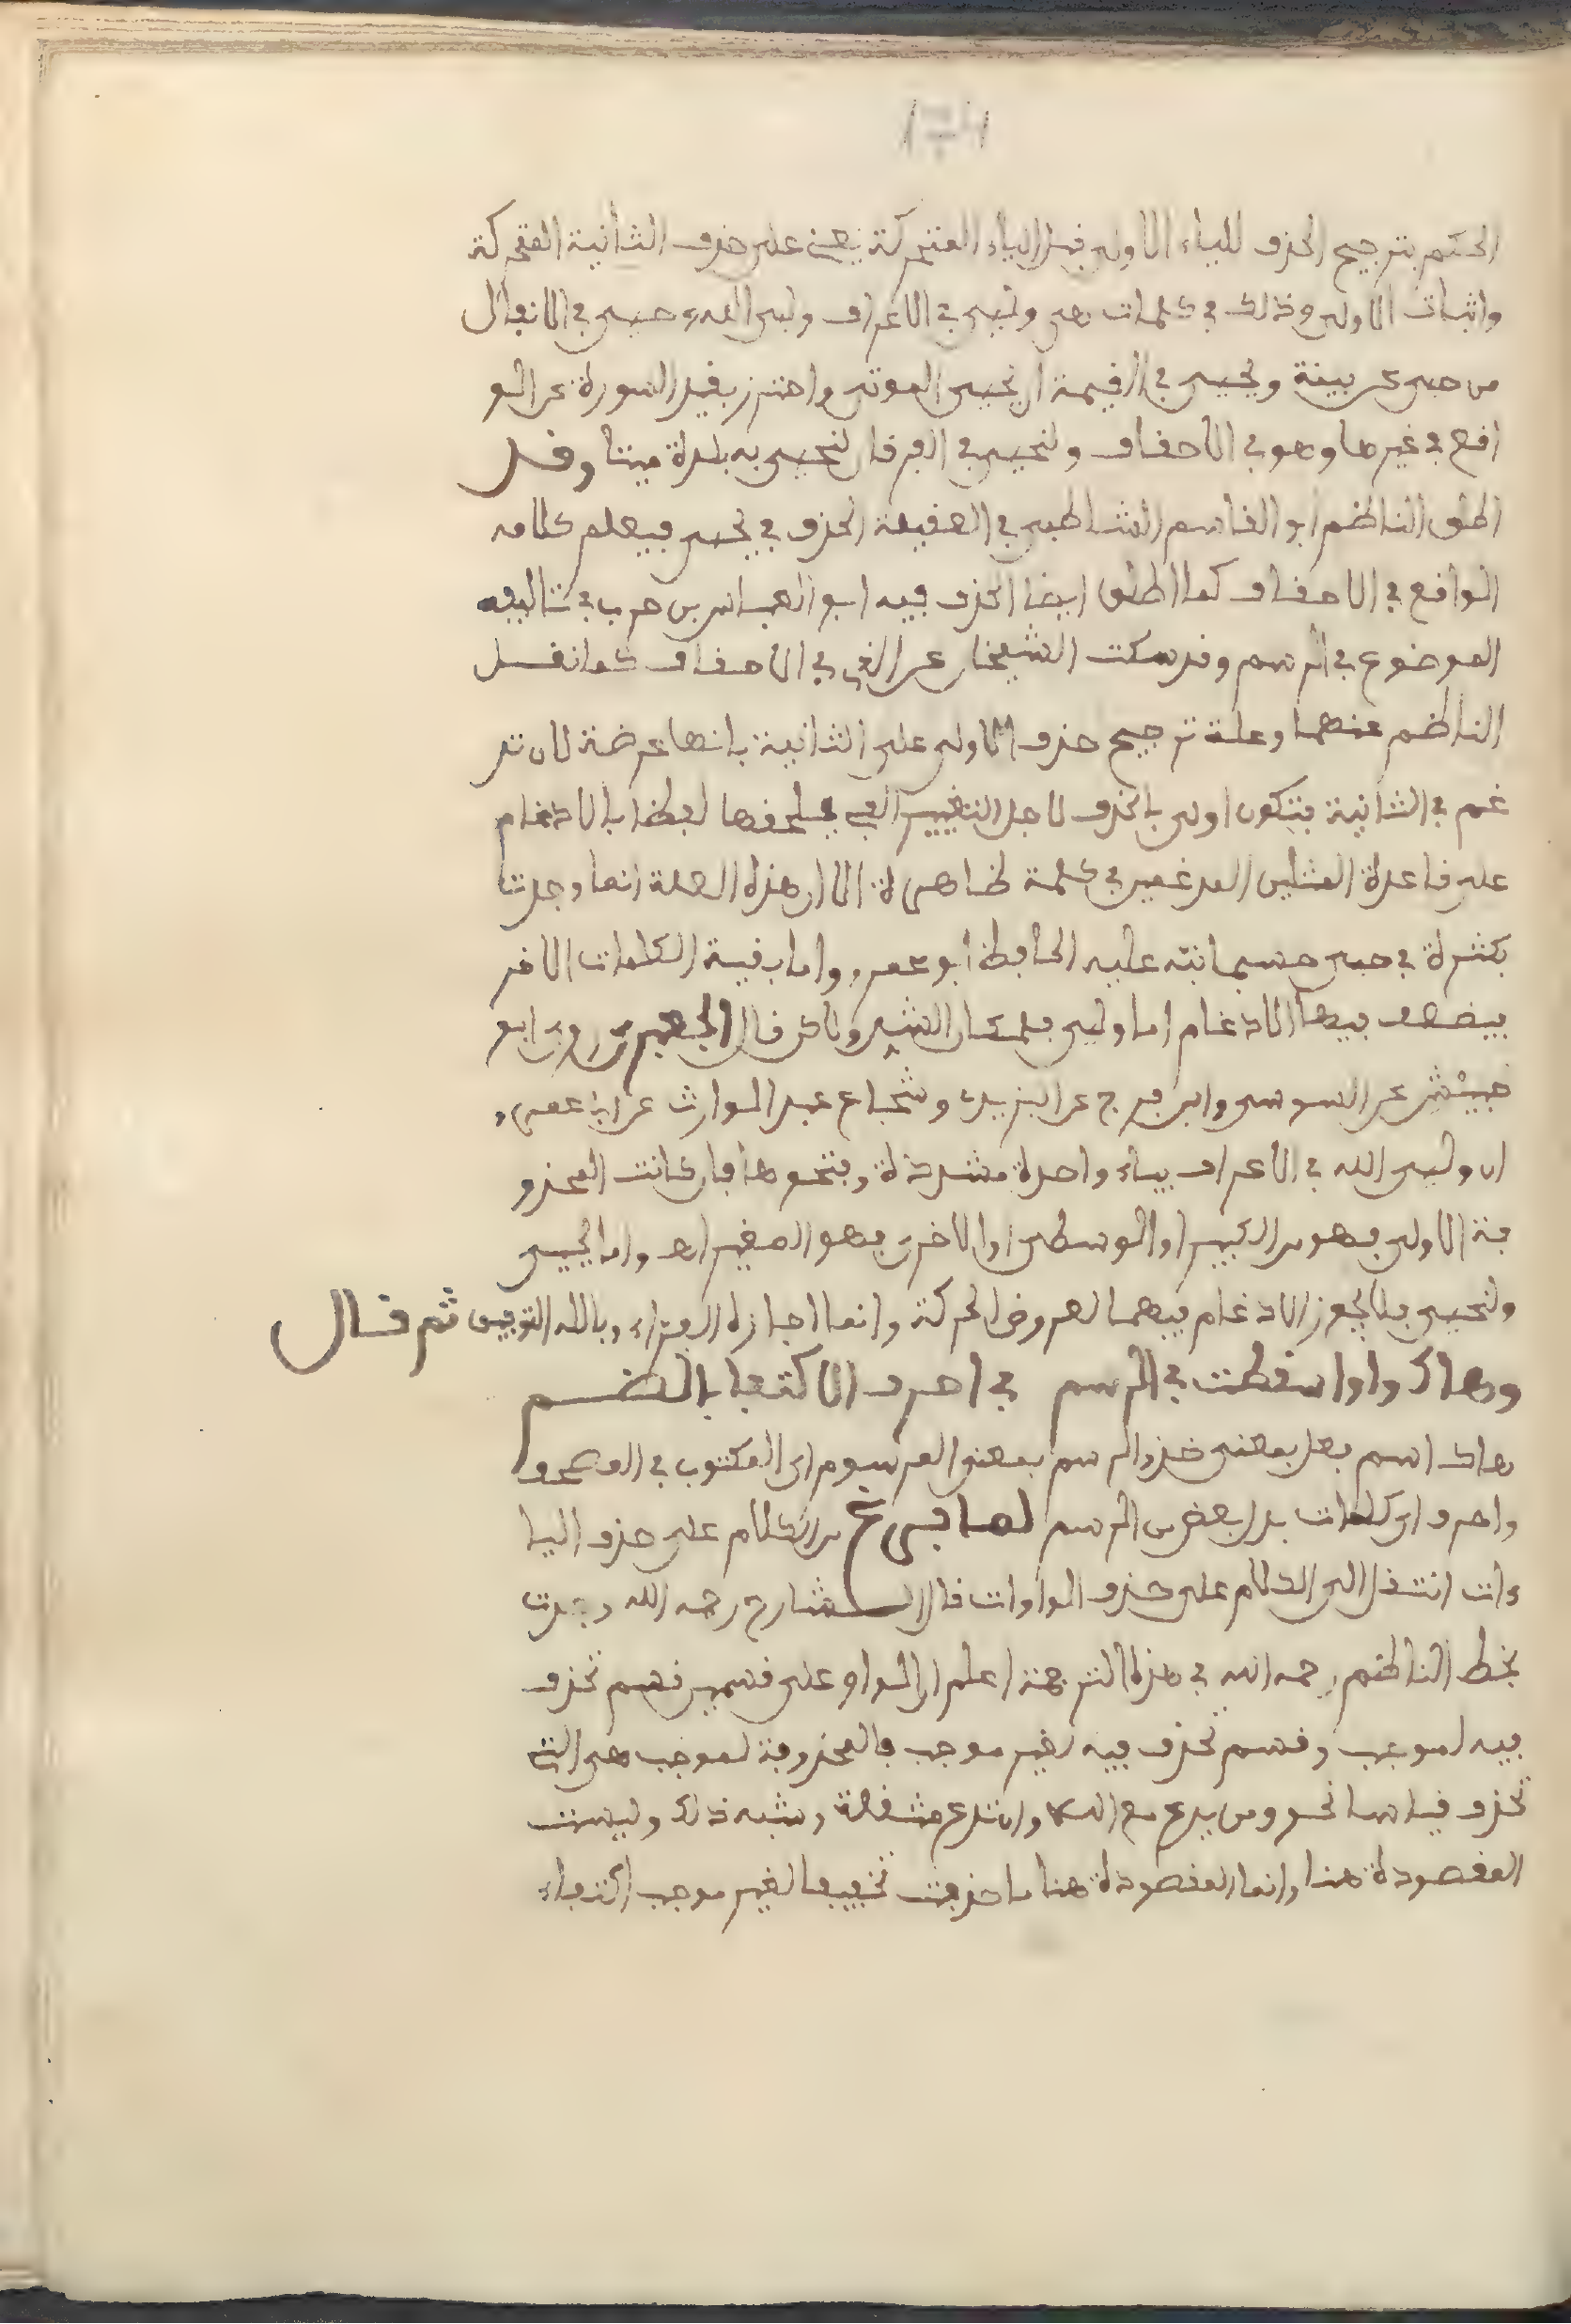 الحكم بترجيح الحذف للياء الاولى قبل الياء المتحركة يعنى على حذف الثانية المتحركة
واثبات الاولى وذلك في كلمات هى وليى في الاعراف ولى الله وحيى في الانفال
من حيى عن بينة ويحيى في القيمة ان يحيى الموتى واحترز بقيد السورة عن الو
اقع في غيرها وهو في الاحقاف ولنحيى في الفرقان لنحيى به بلدة ميتا وقد
اطلق الناظم ابو القاسم الشاطبى في العقيلة الحذف في يحيى فيعلم كلامه
الواقع في الاحقاف كما اطلق ايضا الحذف فيه ابو العباس بن حرب في تاليفه
الموضوع في الرسم وقد سكت الشيخان عن الذي في الاحقاف كما نقل
الناظم عنهما وعلة ترجيح حذف الاولى على الثانية بانها عرضة لان تد
غم في الثانية فتكون اولى بالحذف لاجل التغيير الذي يلحقها لفظا بالادغام
على قاعدة المثلين المدغمين في كلمة ظاهرة الا ان هذه العلة انما وجدت
بكثرة في حيى حسبما نبه عليه الحافظ ابو عمرو واما بقية الكلمات الاخر
فيضعف فيها الادغام اما وليى فلمكان التشديد ولاكن قال الجعبرى روى ابو
حبيش عن السوسى وابن فرج عن اليزيدى وشجاع عبد الوارث عن ابى عمرو
ان وليى الله في الاعراف بياء واحدة مشددة وفتحوها فان كانت المحذو
فة الاولى فهو من الكبير او الوسطى او الاخرى فهو الصغير اهـ واما يحيى
ولنحيى فلا يجوز الادغام فيهما لعروض الحركة وانما اجازه الفراء وبالله التوفيق ثم قال
وهاك واوا سقطت في الرسم في احرف الاكتفا بالضم
هاك اسم فعل بمعنى خذ والرسم بمعنى المرسوم اى المكتوب في المصحف
واحرف اى كلمات بدل بعض من الرسم لما فرغ من الكلام على حذف اليا
ءات انتقل الى الكلام على حذف الواوات قال الشارح رحمه الله وجدت
بخط الناظم رحمه الله في هذه الترجمة اعلم ان الواو على قسمين قسم تحذف
فيه لموجب وقسم تحذف فيه لغير موجب فالمحذوفة لموجب هى التى
تحذف قياسا نحو ومن يدع مع الله وان تدع مثقلة وشبه ذلك وليست
المقصودة هنا وانما المقصودة هنا ما حذفت تخفيفا لغير موجب اكتفاء